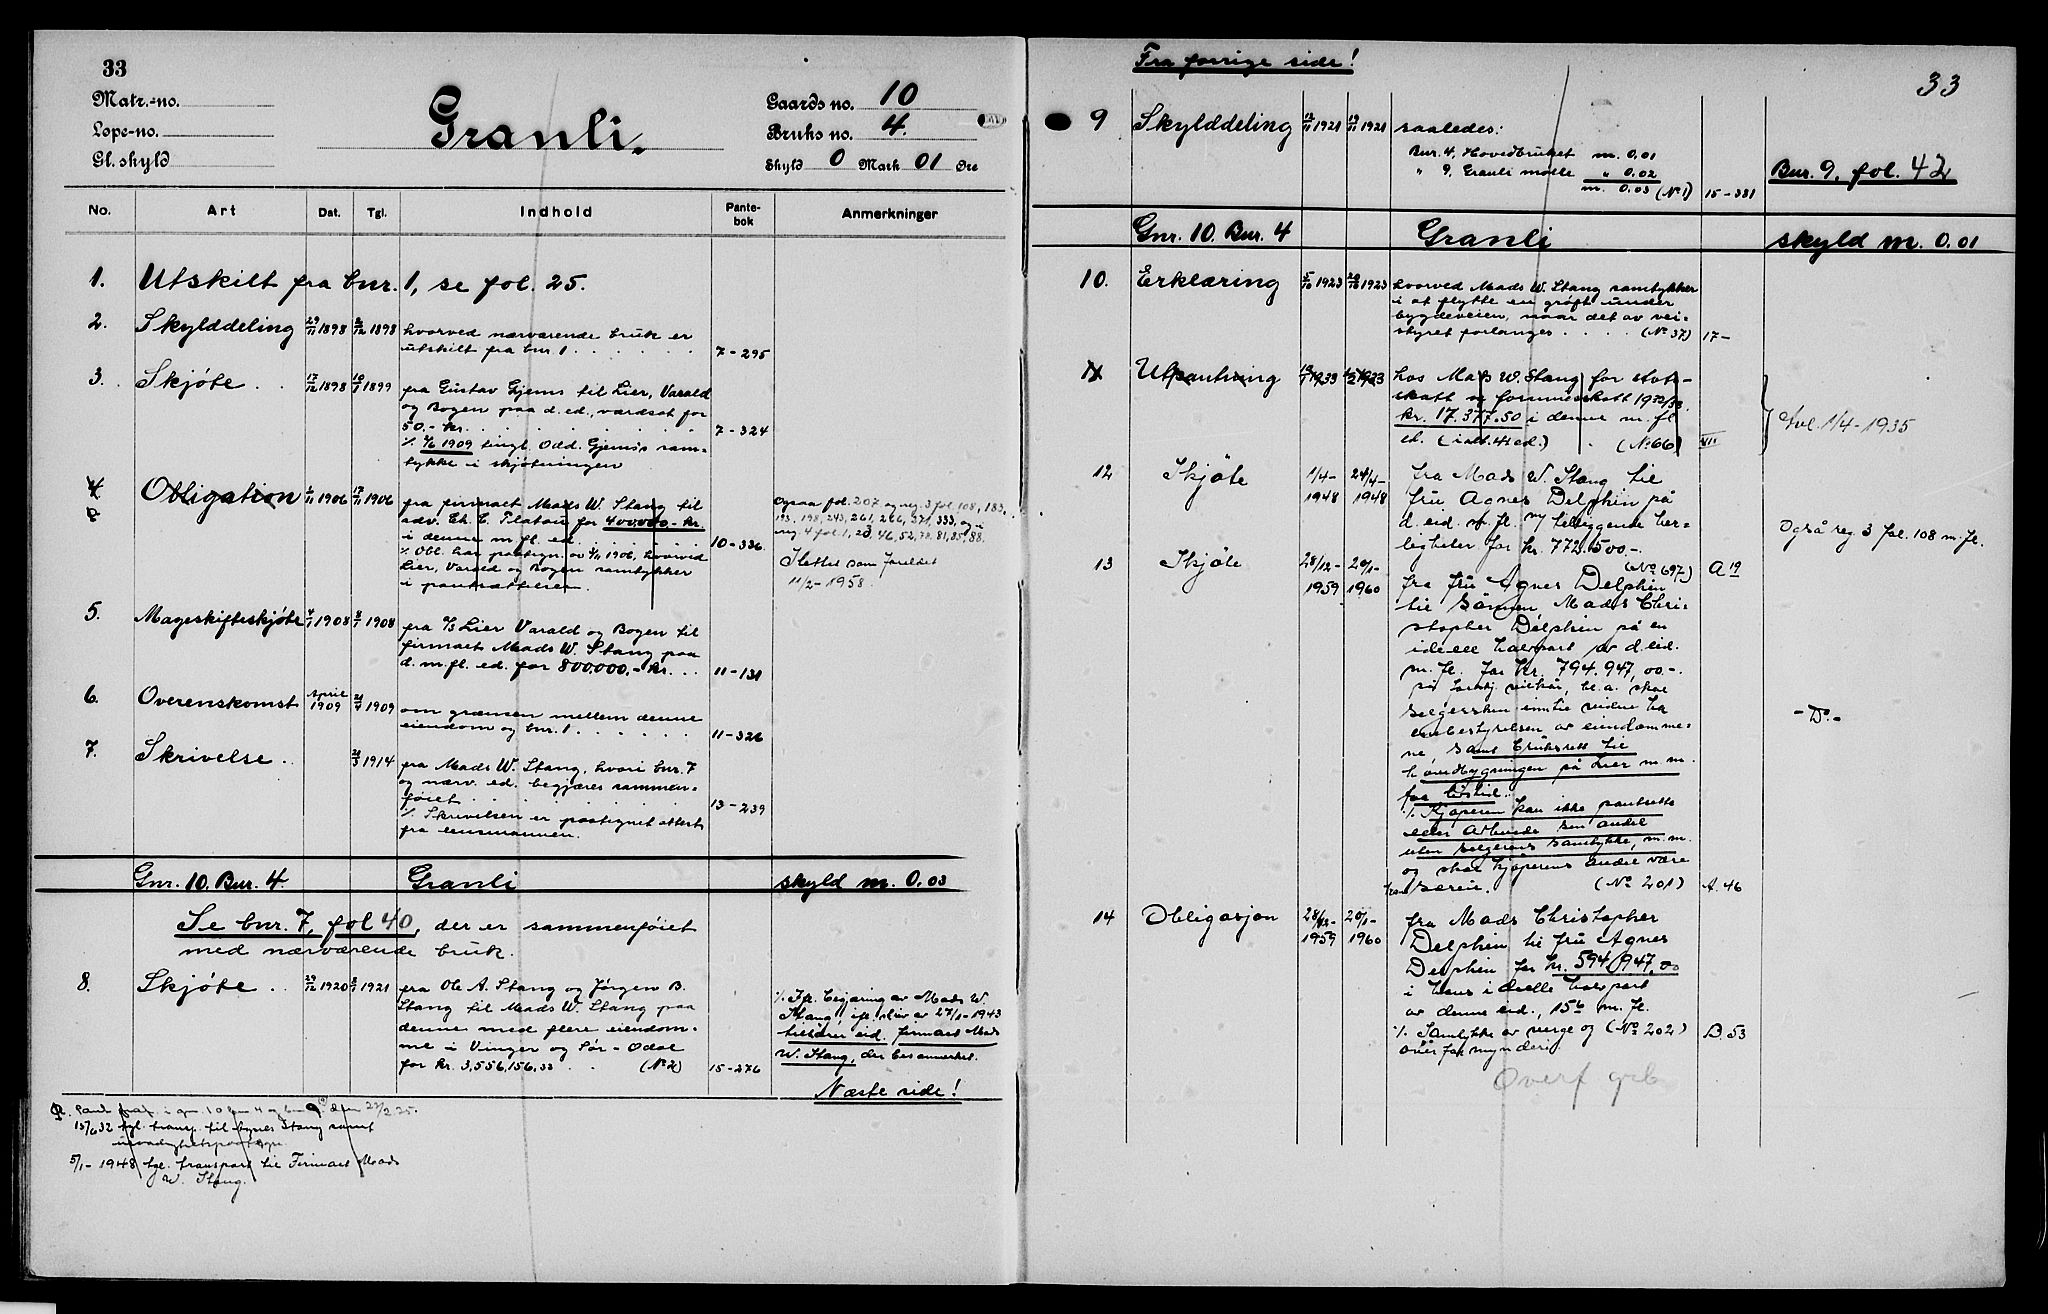 33
Matr.-no.
Løpe-no.
Gl. skyld
Granli.
Gaards no. 10
Bruks no. 4.
Skyld 0 Mark 01 Øre
No. Art Dat. Tgl. Indhold Pante-bok Anmerkninger
1. Utskilt fra bnr. 1, se fol. 25.
2. Skylddeling 29/11 1898 2/12 1898 hvorved nærværende bruk er
utskilt fra bnr. 1 . . . . . . 7-295
3. Skjøte . . 17/12 1898 10/1 1899 fra Gustav Gjems til Lier, Varald
og Bogen paa d. ed., værdsat for
50.- kr. . . . . . . . 7-324
1909 tingl. Odd. Gjems's sam-
tykke i skjøtningen
4 Obligation 1906 17/11 1906 fra firmaet Mads W. Stang til
adv. Ch. C. Platou for 400,000.- kr.
i denne m. fl. ed. . . . . . 10-336
Obl. har paategn. av 1906, hvorved
Lier, Varald og Bogen samtykker
i pantsættelsen.
Ogsaa fol. 207 og reg. 3 fol. 108, 183,
193, 198, 243, 261, 266, 371, 333, og i
reg. 4 fol. 1, 23, 46, 52, 78, 81, 85, 88.
Slettet som foreldet
11/2-1958.
5. Mageskifteskjøte 1908 1908 fra A/S Lier Varald og Bogen til
firmaet Mads W. Stang paa
d. m. fl. ed. for 800,000.- kr. . . 11-131
6. Overenskomst April 1909 1909 om grænsen mellem denne
eiendom og bnr. 1 . . . . . . 11-326
7. Skrivelse . . 1914 fra Mads W. Stang, hvori bnr. 7
og nærv. ed. begjæres sammen-
føiet . . . . . . . 13-239
Skrivelsen er paategnet attest
fra lensmannen.
Gnr. 10. Bnr. 4. Granli skyld m. 0.03
Se bnr. 7, fol 40, der er sammenføiet
med nærværende bruk.
8. Skjøte . . 29/12 1920 1921 fra Ole A. Stang og Jørgen B.
Stang til Mads W. Stang paa
denne med flere eiendom-
me i Vinger og Sør-Odal
for kr. 3,556,156.33 . . (No 2) 15-276
Ifl. begjæring av Mads W.
Stang, ifl. skiv av 27/1-1943
tilhører eid. firmaet Mads
W. Stang, der bes anmerket.
Næste side!
15/6 32 tgl. transp. til Agnes Stang samt
5/1-1948 tgl. transport til Firmaet Mads
W. Stang.
Fra forrige side!
33
9 Skylddeling 12/11 1921 19/11 1921 saaledes:
Bnr. 4, Hovedbruket m. 0.01
" 9, Granli mølle " 0.02
m. 0.03 (No 1) 15-381
Bnr. 9, fol. 42
Gnr. 10. Bnr. 4 Granli skyld m. 0.01
10. Erklæring 5/10 1923 1923 hvorved Mads W. Stang samtykker
i at flytte en grøft under
bygdeveien, naar det av vei-
styret forlanges . . . . (No 37) 17-
11 Utpantning 1933 1933 hos Mads W. Stang for Stats-
skatt og formuesskatt 1932/33.
kr. 17.377.50 i denne m. fl
ed. (i alt 44 ed.) . (No 66) VII
Avl. 1/4-1935
12 Skjøte 1/4-1948 24/4-1948 fra Mads W. Stang til
fru Agnes Delphin på
d. eid. m. fl. m/ tilliggende her-
ligheter for kr. 772.500-.
(No 697) A 19
Også reg 3 fol. 108 m. fl.
13 Skjøte 28/12-1959 20/1-1960 fra fru Agnes Delphin
til sønnen Mads Chri-
stopher Delphin på en
ideell halvpart av d. eid.
m. fl. for kr. 794.947,00-.
på forskj. vilkår, bl.a. skal
selgersken inntil videre ha
enbestyrelsen av eiendomme-
ne samt bruksrett til
hovedbygningen på Lier m. m.
for livstid.
Kjøperen kan ikke pantsette
eller avhende sin andel
uten selgerens samtykke, m. m.
og skal kjøperens andel være
hans særeie. (No 201) A. 46
- Do -
14 Obligasjon 28/12-1959 20/1-1960 fra Mads Christopher
Delphin til fru Agnes
Delphin for kr. 594.947.00
i hans ideelle halvpart
av denne eid., m. fl.
Samtykke av verge og (No 202) B. 53
overformynderi.
Overf grb